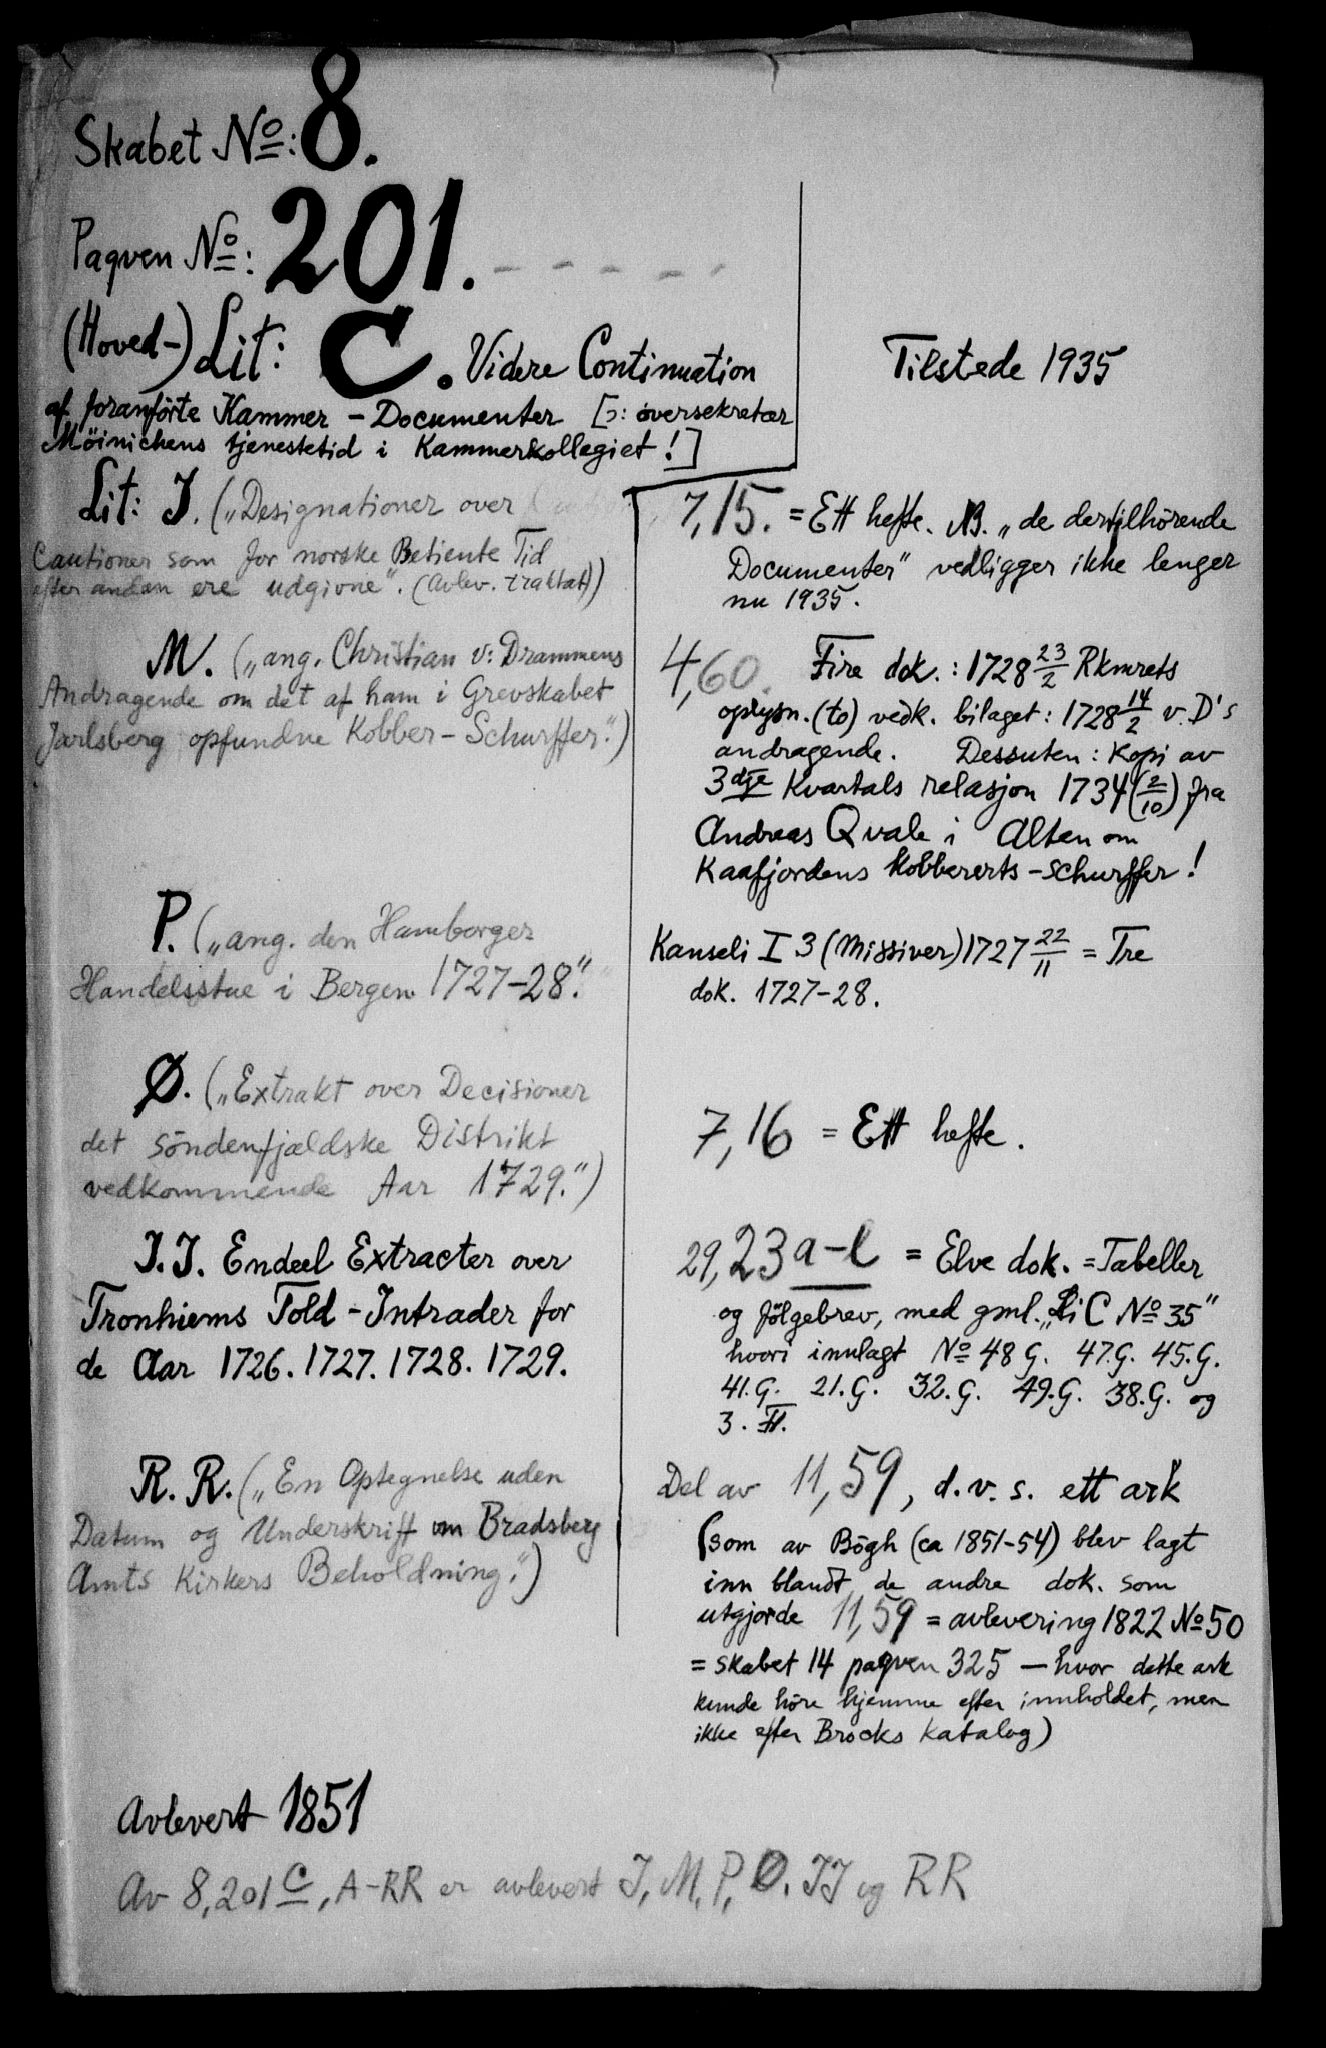 Skabet No: 8.
Paqven No: 201. - - - - -
(Hoved-) Lit: C. Videre Continuation
af foranförte Kammer - Documenter [ɔ: översekretær
Möinichens tjenestetid i Kammerkollegiet!]
Tilstede 1935
Lit: I. („Designationer over
Cautioner som for norske Betiente Tid
efter anden ere udgivne". (Avlev. traktat))
7,15. = Ett hefte. NB. „de dertilhörende
Documenter" vedligger ikke lenger
nu 1935.
M. („ang. Christian v: Drammens
Andragende om det af ham i Grevskabet
Jarlsberg opfundne Kobber-Schurffer.")
4,60. Fire dok.: 1728 23/2 Rkmrets
oplysn. (to) vedk. bilaget: 1728 14/2 v. D's
andragende. Dessuten: Kopi av
3dje Kvartals relasjon 1734 (2/10) fra
Andreas Qvale i Alten om
Kaafjordens kobbererts-schurffer!
P. („ang. den Hamborger
Handelsstue i Bergen 1727-28."
Kanseli I 3 (Missiver) 1727 22/11 = Tre
dok. 1727-28.
Ø. („Extrakt over Decisioner
det söndenfjældske Distrikt
vedkommende Aar 1729.")
7,16 = Ett hefte.
I.I. Endeel Extracter over
Tronhiems Told-Intrader for
de Aar 1726. 1727. 1728. 1729.
29,23 a-l = Elve dok. = Tabeller
og fölgebrev, med gml. „Li C No 35"
hvori innlagt No 48 G. 47.G. 45.G.
41.G. 21.G. 32.G. 49.G. 38.G. og
3. H.
R. R. („En Optegnelse uden
Datum og Underskrift om Bradsberg
Amts Kirkers Beholdning.")
Del av 11,59, d.v.s. ett ark
(som av Bögh (ca 1851-54) blev lagt
inn blandt de andre dok. som
utgjorde 11,59 = avlevering 1822 No 50
= skabet 14 paqven 325 - hvor dette ark
kunde höre hjemme efter innholdet, men
ikke efter Brocks katalog)
Avlevert 1851
Av 8,201 C, A-RR er avlevert I, M, P, Ø. II og RR